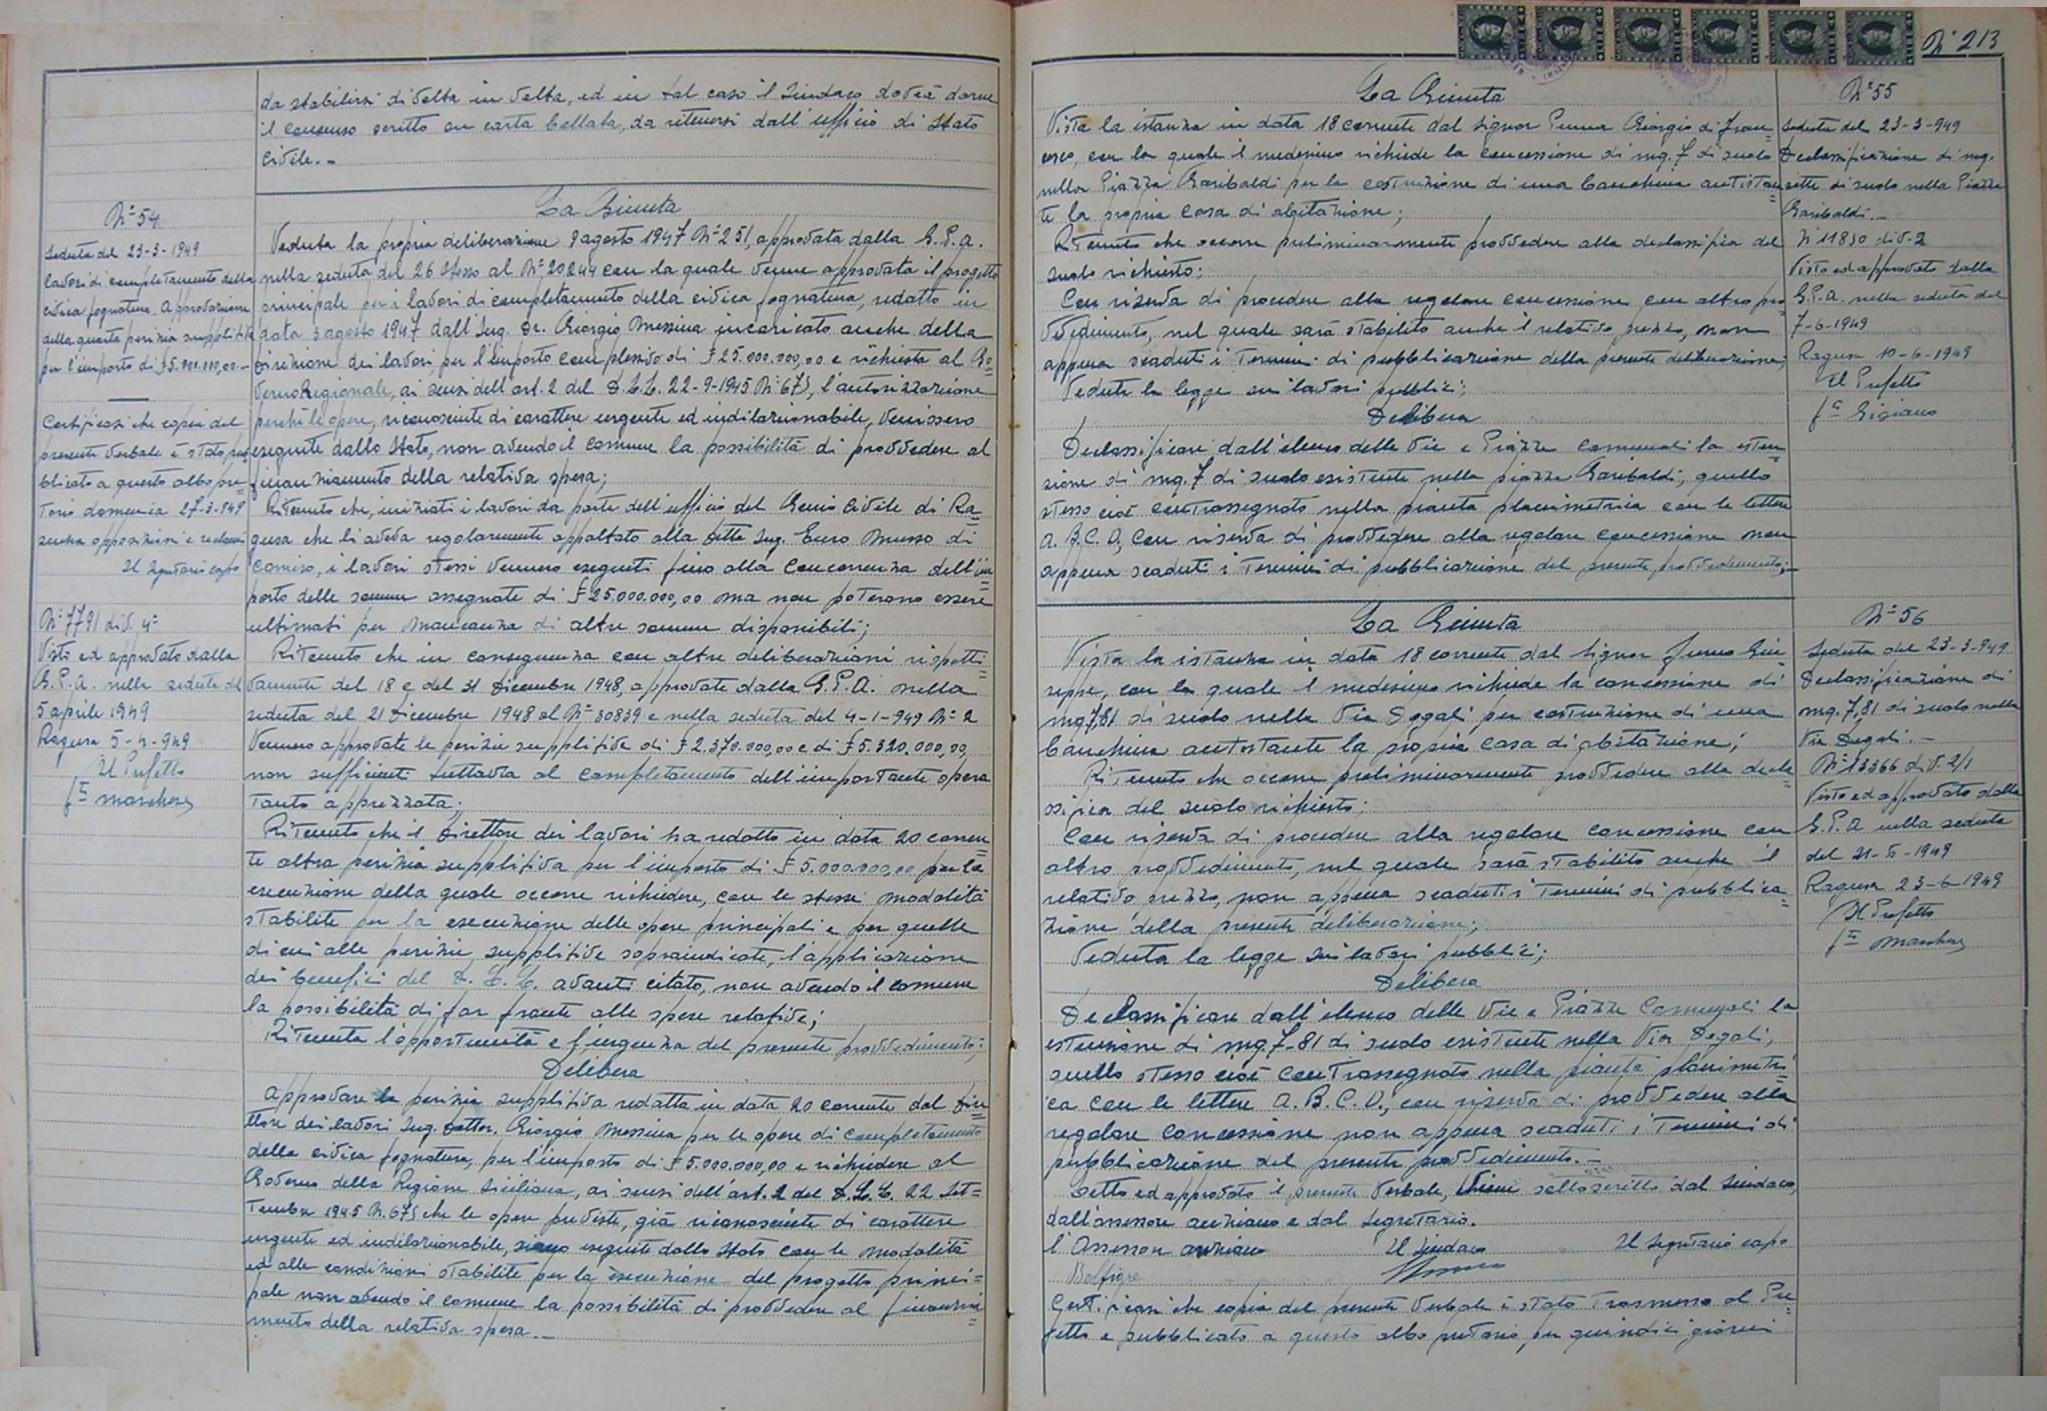 da stabilirsi di volta in volta, ed in tal caso il Sindaco dovrà darne
il consenso scritto su carta bollata, da ritenersi dall'ufficio di Stato
Civile.-
N° 54
Seduta del 23-3-1949
lavori di completamento della
civica fognatura. Approvazione
della quarta perizia suppletiva
per l'importo di £ 5.000.000,00.-
Certificasi che copia del
presente verbale è stato pub
blicato a questo albo pre=
torio domenica 27-3-949
senza opposizioni e reclami
Il Segretario capo
N° 7791 div. 4ª
Visto ed approvato dalla
G.P.A. nella seduta del
5 aprile 1949
Ragusa 5-4-949
Il Prefetto
La Giunta
Veduta la propria deliberazione 9 agosto 1947 N° 251, approvata dalla G.P.A.
nella seduta del 26 stesso al N° 20244 con la quale venne approvata il progetto
principale per i lavori di completamento della civica fognatura, redatto in
data 3 agosto 1947 dall'Ing. Dr. Giorgio Messina incaricato anche della
direzione dei lavori, per l'importo complessivo di £ 25.000.000,00 e richiesta al Go=
verno Regionale, ai sensi dell'art. 2 del D.L.L. 22-9-1945 N° 675, l'autorizzazione
perché le opere, riconosciute di carattere urgente ed indilazionabile, venissero
eseguite dallo Stato, non avendo il comune la possibilità di provvedere al
finanziamento della relativa spesa;
Ritenuto che, iniziati i lavori da parte dell'ufficio del Genio Civile di Ra=
gusa che li aveva regolarmente appaltato alla Ditta Ing. Musso di
Comiso, i lavori stessi vennero eseguiti fino alla concorrenza dell'im=
porto delle somme assegnate di £ 25.000.000,00 ma non poterono essere
ultimati per mancanza di altre somme disponibili;
Ritenuto che in conseguenza con altre deliberazioni rispetti
vamente del 18 e del 31 Dicembre 1948, approvate dalla G.P.A. nella
seduta del 21 Dicembre 1948 al N° 30839 e nella seduta del 4-1-949 N° 2
vennero approvate le perizie suppletive di £ 2.370.000,00 e di £ 5.320.000,00,
non sufficienti tuttavia al completamento dell'importante opera
tanto apprezzata;
Ritenuto che il Direttore dei lavori ha redatto in data 20 corren=
te altra perizia suppletiva per l'importo di £ 5.000.000,00 per la
esecuzione della quale occorre richiedere, con le stesse modalità
stabilite per la esecuzione delle opere principali e per quelle
di cui alle perizie suppletive sopraindicate, l'applicazione
dei benefici del D.L.L. avanti citato, non avendo il comune
la possibilità di far fronte alle spese relative;
Ritenuta l'opportunità e l'urgenza del presente provvedimento;
Delibera
Approvare la perizia suppletiva redatta in data 20 corrente dal Dire=
ttore dei lavori Ing. Dottor. Giorgio Messina per le opere di completamento
della civica fognatura, per l'importo di £ 5.000.000,00 e richiedere al
Governo della Regione Siciliana, ai sensi dell'art. 2 del D.L.L. 22 Set=
tembre 1945 N. 675 che le opere previste, già riconosciute di carattere
urgente ed indilazionabile, siano eseguite dallo Stato con le modalità
ed alle condizioni stabilite per la esecuzione del progetto princi=
pale non avendo il comune la possibilità di provvedere al finanzia=
mento della relativa spesa.-
N° 213
La Giunta
Vista la istanza in data 18 corrente dal Signor Giorgio di Fran=
cesco, con la quale il medesimo richiede la concessione di mq. 7 di suolo
nella Piazza Garibaldi per la costruzione di una banchina antistan
te la propria casa di abitazione;
Ritenuto che occorre preliminarmente provvedere alla declassifica del
suolo richiesto;
Con riserva di procedere alla regolare concessione con altro pro
vvedimento, nel quale sarà stabilito anche il relativo prezzo, non
appena scaduti i termini di pubblicazione della presente deliberazione;
Veduta la legge sui lavori pubblici;
Delibera
Declassificare dall'elenco delle Vie e Piazze Comunali la esten=
sione di mq. 7 di suolo esistente nella piazza Garibaldi, quello
stesso cioè contrassegnato nella pianta planimetrica con le lettere
A. B. C. D, con riserva di provvedere alla regolare concessione non
appena scaduti i termini di pubblicazione del presente provvedimento.-
N° 55
Seduta del 23-3-949
Declassificazione di mq.
sette di suolo nella Piazza
Garibaldi.-
N° 11830 div. 2
Visto ed approvato dalla
G.P.A. nella seduta del
7-6-1949
Ragusa 10-6-1949
Il Prefetto
La Giunta
Vista la istanza in data 18 corrente dal Signor Giu
seppe, con la quale il medesimo richiede la concessione di
mq 7,81 di suolo nella Via Dogali per costruzione di una
banchina antistante la propria casa di abitazione;
Ritenuto che occorre preliminarmente provvedere alla decla=
ssifica del suolo richiesto;
Con riserva di procedere alla regolare concessione con
altro provvedimento, nel quale sarà stabilito anche il
relativo prezzo, non appena scaduti i termini di pubblica=
zione della presente deliberazione;
Veduta la legge sui lavori pubblici;
Delibera
Declassificare dall'elenco delle Vie e Piazze Comunali la
estensione di mq. 7-81 di suolo esistente nella Via Dogali,
quello stesso cioè contrassegnato nella pianta planimetri=
ca con le lettere A. B. C. D., con riserva di provvedere alla
regolare concessione non appena scaduti i termini di
pubblicazione del presente provvedimento.-
Letto ed approvato il presente verbale, viene sottoscritto dal Sindaco,
dall'assessore anziano e dal Segretario.
l'Assessore anziano Il Sindaco Il Segretario capo
Certificasi che copia del presente verbale è stato trasmesso al Pre=
fetto e pubblicato a questo albo pretorio per quindici giorni
N° 56
Seduta del 23-3-949
Declassificazione di
mq. 7,81 di suolo nella
Via Dogali.-
N° 13366 div. 2/1
Visto ed approvato dalla
G.P.A nella seduta
del 21-6-1949
Ragusa 23-6-1949
Il Prefetto